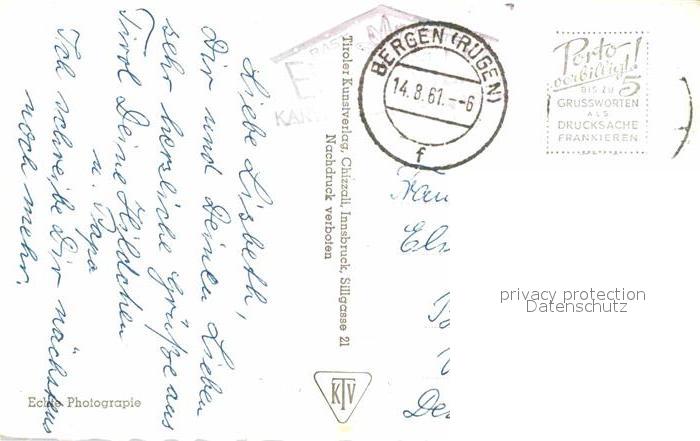 Liebe Lisbeth,
Dir und Deinen Lieben
sehr herzliche Grüße aus
Tirol Deine Hildchen
u. Papa
Ich schreibe Dir nächstens
noch mehr.
Echte Photograpie
Tiroler Kunstverlag, Chizzali, Innsbruck, Sillgasse 21
Nachdruck verboten
KTV
BERGEN (RÜGEN)
14.8.61.-6
f
Porto
verbilligt!
BIS ZU 5
GRUSSWORTEN
ALS
DRUCKSACHE
FRANKIEREN
Frau
privacy protection
Datenschutz